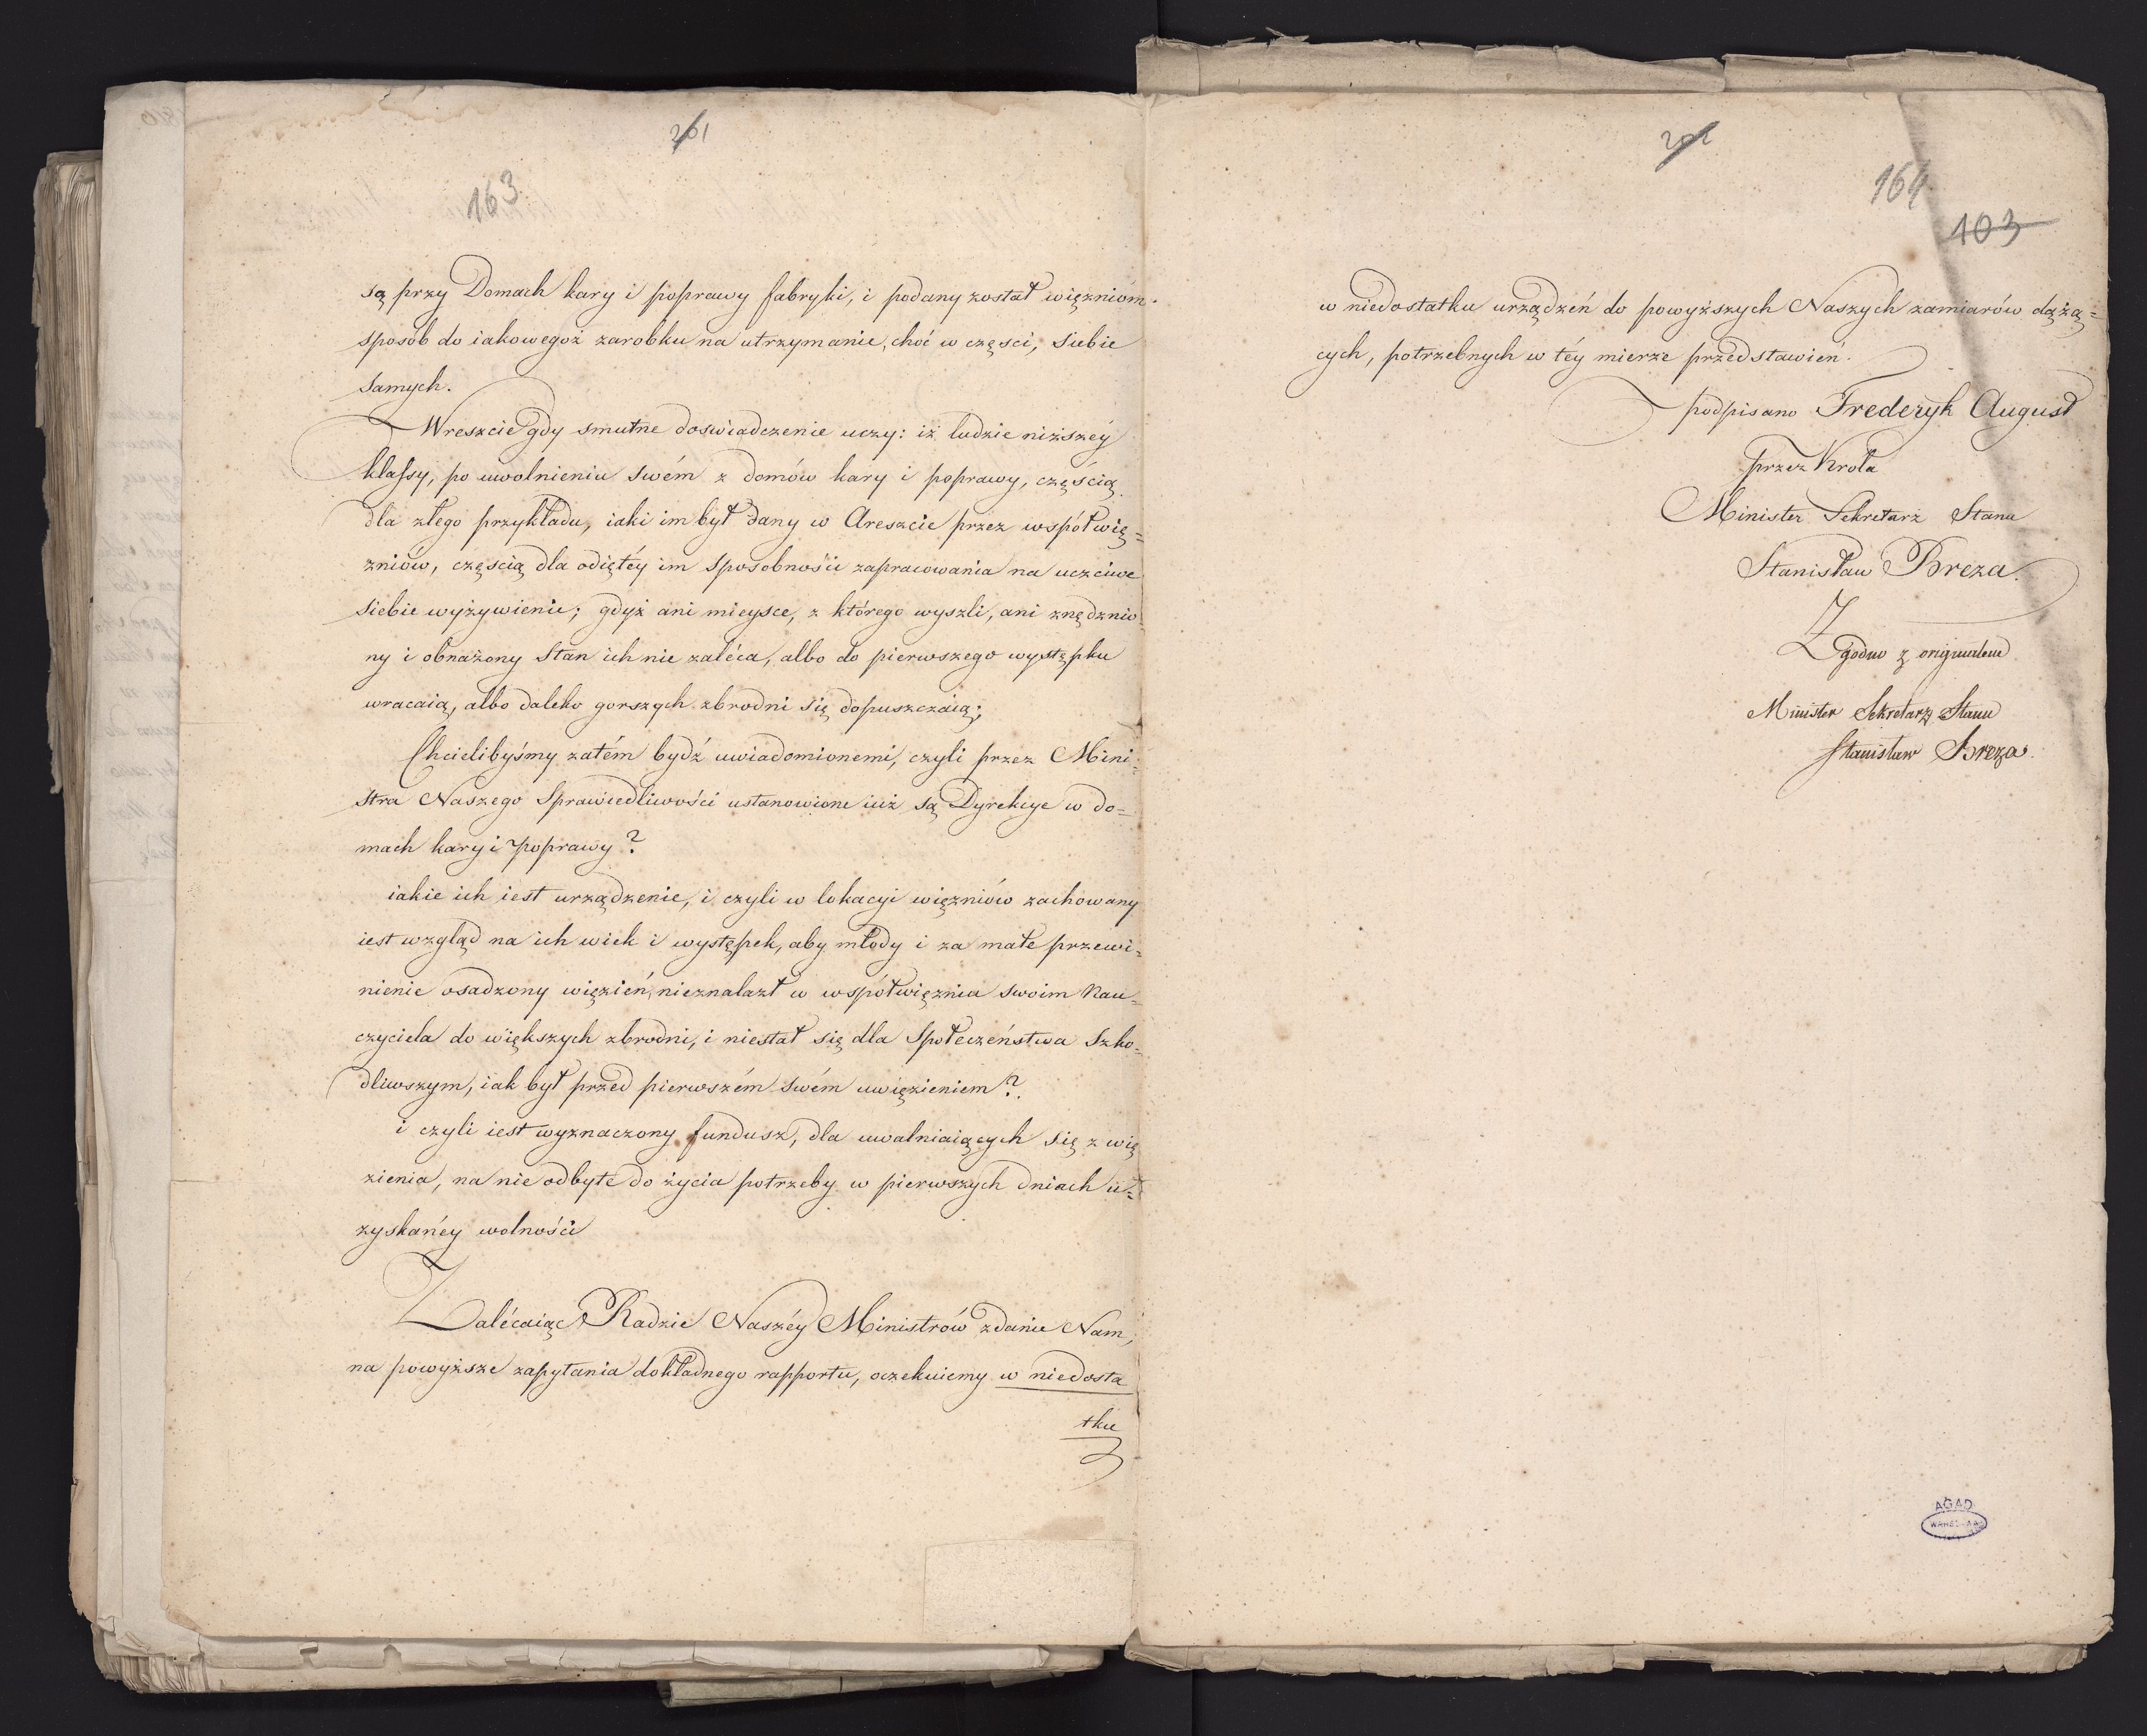 201
163
są przy Domach kary i poprawy fabryki, i podany został więzniom
sposób do iakowegoż zarobku na utrzymanie, choć w częsci, siebie
samych.
Wreszcie gdy smutne doswiadczenie uczy: iż ludzie niższey
klassy, po uwolnieniu swém z domów kary i poprawy, częścią
dla złego przykładu, iaki im był dany w Areszcie przez wspołwię=
zniów, częscią dla odiętéy im sposobności zapracowania na uczciwe
siebie wyżywienie; gdyż ani mieysce, z którego wyszli, ani znędznio=
ny i obnażony Stan ich nie zaléca, albo do pierwszego występku
wracaią, albo daleko gorszych zbrodni się dopuszczaią;
Chcielibyśmy zatém bydź uwiadomionemi, czyli przez Mini=
stra Naszego Sprawiedliwości ustanowione iuż są Dyrekcye w do=
mach kary i poprawy?
iakie ich iest urządzenie, i czyli w lokacyi więzniów zachowany
iest wzgląd na ich wiek i występek, aby młody i za małe przewi=
nienie osadzony więzień, nieznalazł w wspołwięzniu swoim Nau=
czyciela do większych zbrodni, i niestał się dla Społeczeństwa szko=
dliwszym, iak był przed pierwszém swém uwięzieniem?
i czyli iest wyznaczony fundusz, dla uwalniaiących się z wię
zienia, na nie odbyte do życia potrzeby w pierwszych dniach u=
zyskanéy wolności
Zalécaiąc Radzie Naszéy Ministrów zdanie Nam,
na powyższe zapytania dokładnego rapportu, oczekuiemy w niedosta
tku
202
164
103
w niedostatku urządzeń do powyższych Naszych zamiarów dążą=
cych, potrzebnych w téy mierze przedstawień.
podpisano Frederyk August
przez Krola
Minister Sekretarz Stanu
Stanisław Breza.
Zgodno z originałem
Minister Sekretarz Stanu
Stanisław Breza.
AGAD
WARSZAWA